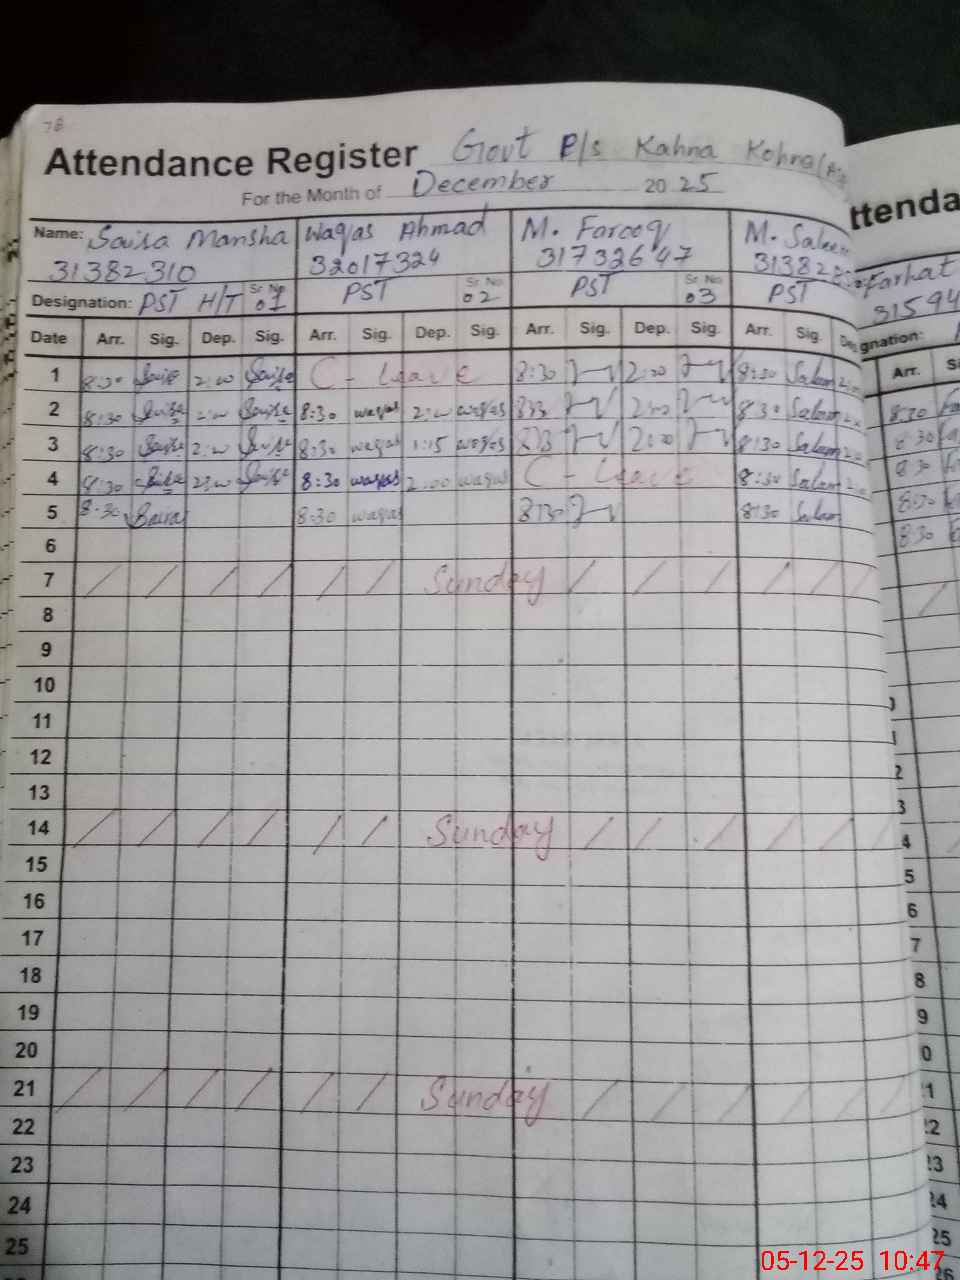 78
Attendance Register Govt P/s Kahna Kohna
For the Month of December 2025
Name: Saisa Mansha Waqas Ahmad M. Farooq M. Saleem
31382310 32017324 31732647 31382
Designation: PST H/T Sr No 01 PST Sr No 02 PST Sr No 03 PST
Date Arr. Sig. Dep. Sig. Arr. Sig. Dep. Sig. Arr. Sig. Dep. Sig. Arr. Sig.
1 8:30 2:00 C - Leave 8:30 2:00 8:30 Saleem
2 8:30 2:00 8:30 waqas 2:00 waqas 8:30 2:00 8:30 Saleem
3 8:30 2:00 8:30 waqas 1:15 waqas 8:30 2:00 8:30 Saleem
4 8:30 2:00 8:30 waqas 2:00 waqas C - Leave 8:30 Saleem
5 8:30 8:30 waqas 8:30 8:30 Saleem
6
7 Sunday
8
9
10
11
12
13
14 Sunday
15
16
17
18
19
20
21 Sunday
22
23
24
25
ttenda
Farhat
31594
gnation:
Arr.
8:30
8:30
8:30
8:30
8:30
2
3
4
5
6
7
8
9
0
1
2
3
24
25
26
05-12-25 10:47